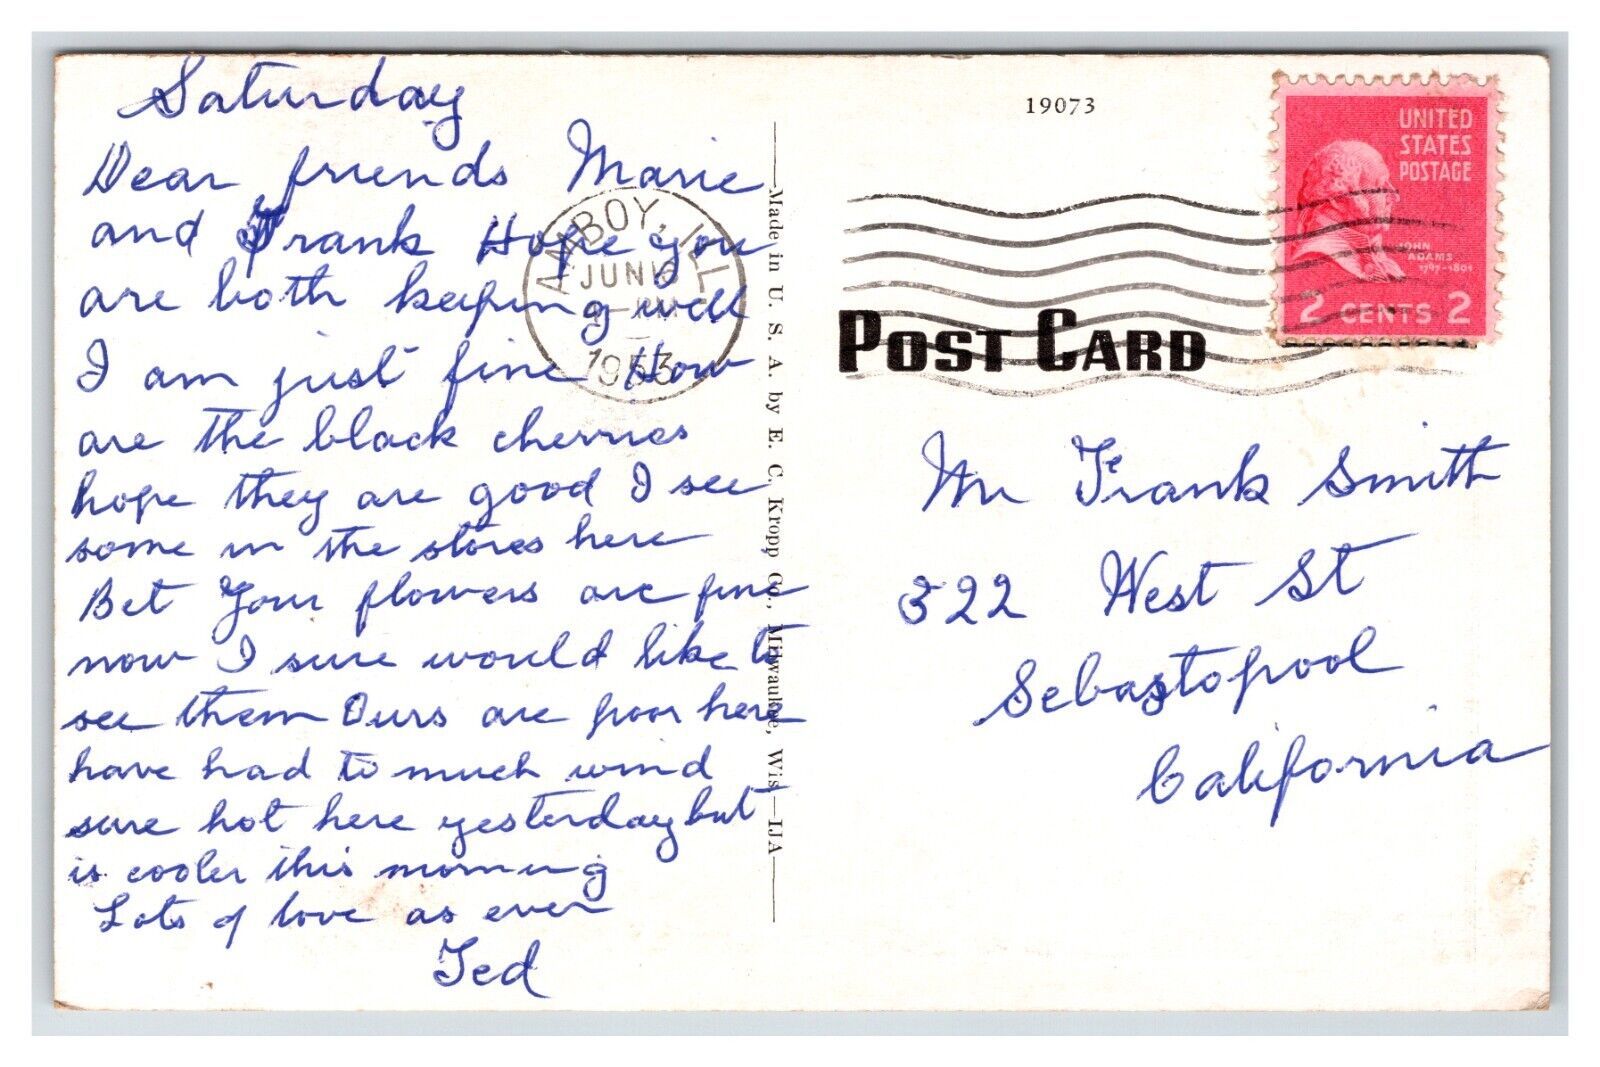 Saturday
Dear friends Marie
and Frank Hope you
are both keeping well
I am just fine How
are the black cherries
hope they are good I see
some in the stores here
Bet Your flowers are fine
now I sure would like to
see them Ours are poor here
have had to much wind
sure hot here yesterday but
is cooler this morning
Lots of love as ever
Ted
AMBOY, ILL.
JUN
1953
Made in U. S. A. by E. C. Kropp Co., Milwaukee, Wis.—IJA
19073
UNITED
STATES
POSTAGE
JOHN
ADAMS
1797-1801
2 CENTS 2
POST CARD
Mr Frank Smith
322 West St
Sebastopool
California